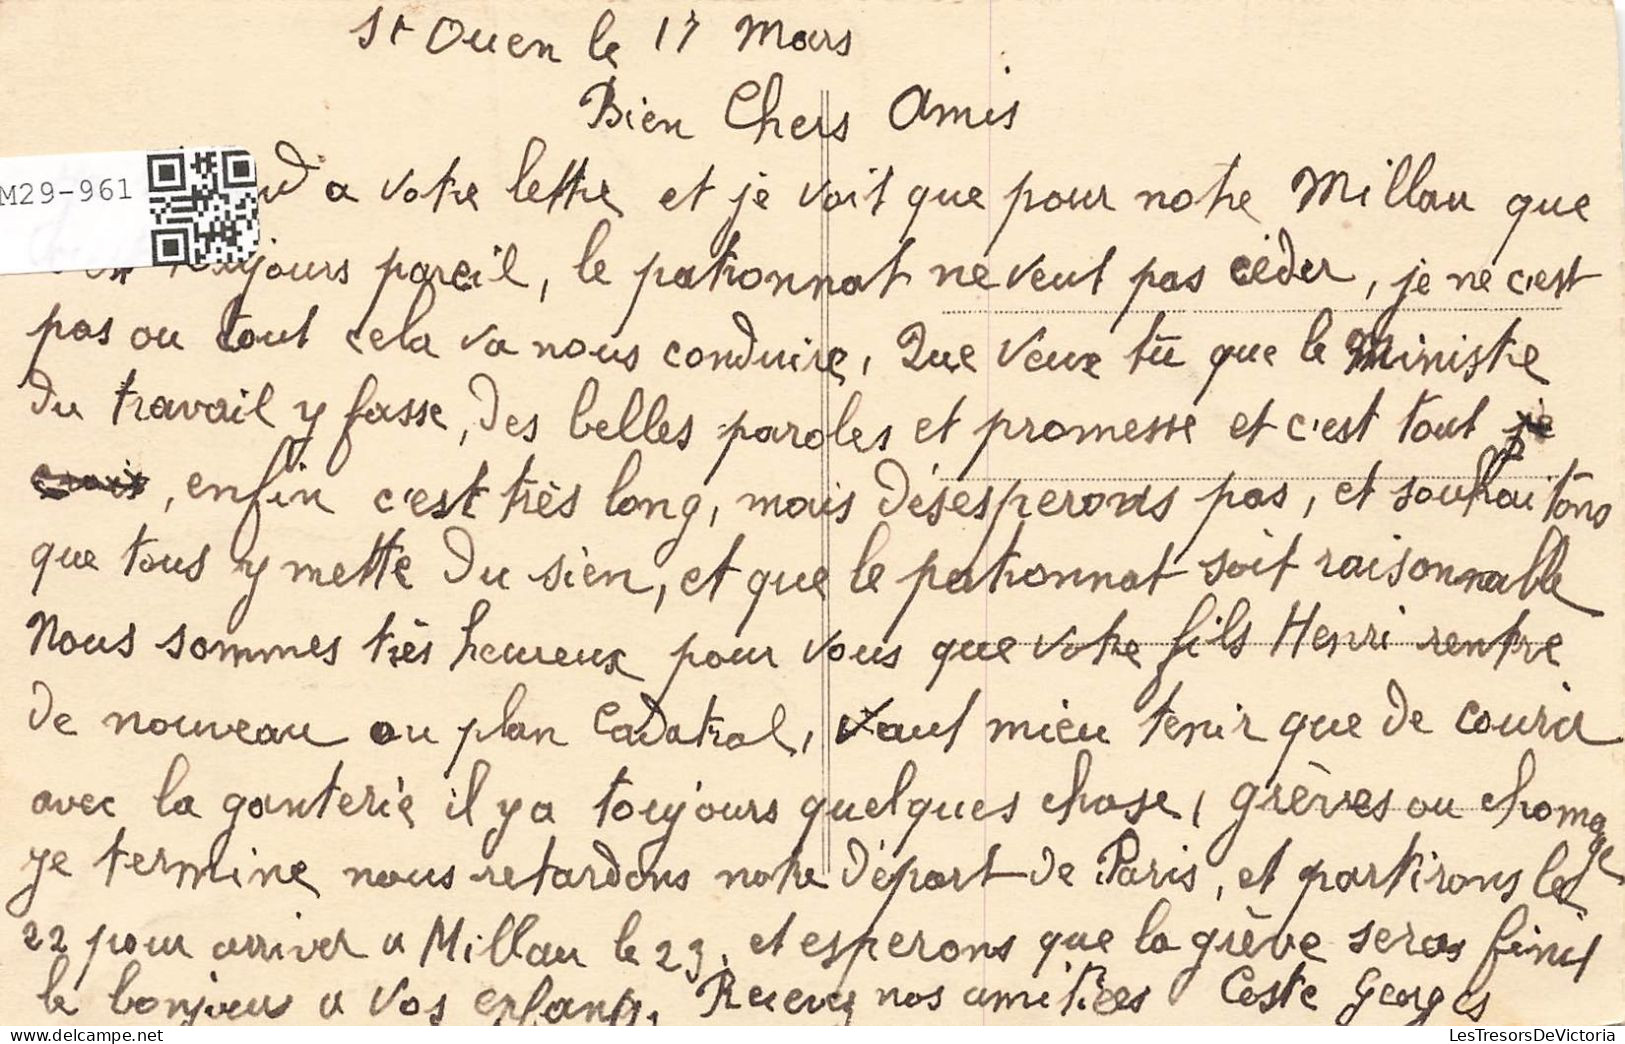 St Ouen le 17 Mars
Bien Chers Amis
M29-961
a votre lettre et je voit que pour notre Millau que
toujours pareil, le patronnat ne veut pas céder, je ne c'est
pas ou tout cela va nous conduire, Que veux tu que le Ministre
du travail y fasse, des belles paroles et promesse et c'est tout je
crois, enfin c'est très long, mais désesperons pas, et souhaitons
que tous y mette du sien, et que le patronnat soit raisonnable
Nous sommes très heureux pour vous que votre fils Henri rentre
de nouveau au plan Cadatral, vaut mieu tenir que de courir
avec la ganterie il y a toujours quelques chose, grèves ou chomage
je termine nous retardons notre départ de Paris, et partirons le
22 pour arriver a Millau le 23, et esperons que la grève seras finit
le bonjour a vos enfants, Recevez nos amitiées Coste Georges
LesTresorsDeVictoria